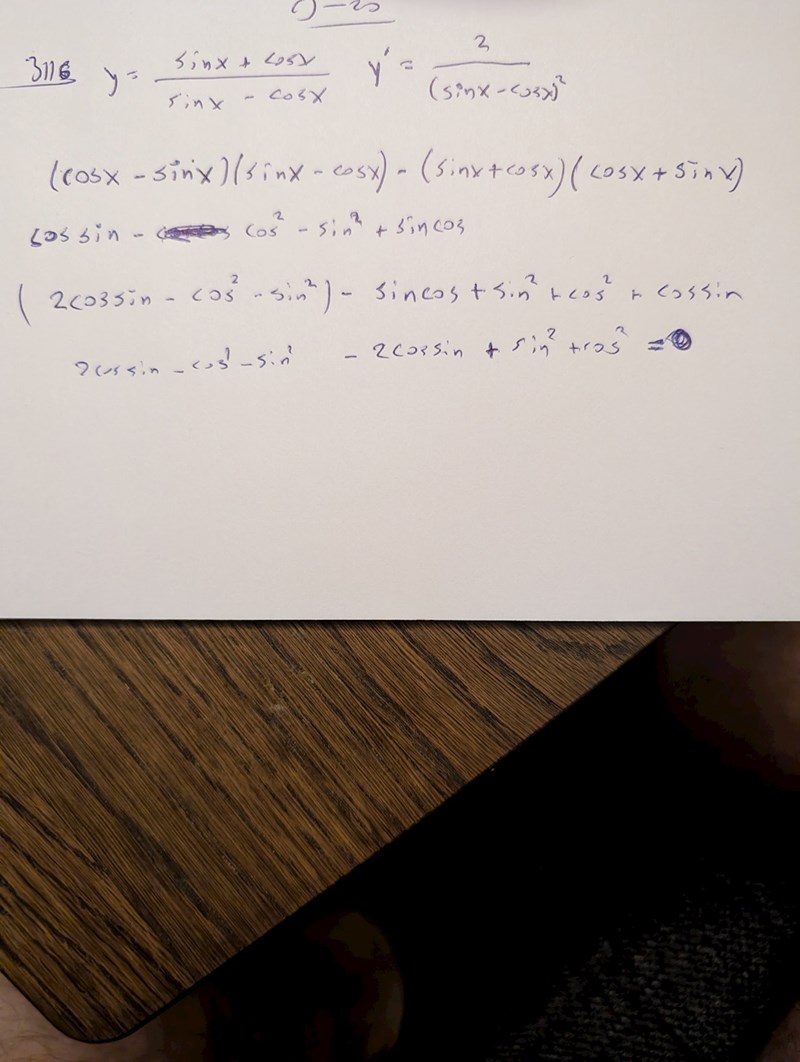 3116 y = (sinx + cosx)/(sinx - cosx) y' = 2/(sinx - cosx)²
(cosx - sinx)(sinx - cosx) - (sinx + cosx)(cosx + sinx)
cos sin - cos² - sin² + sincos
(2cossin - cos² - sin²) - sincos + sin² + cos² + cossin
2cossin - cos² - sin² - 2cossin + sin² + cos² =